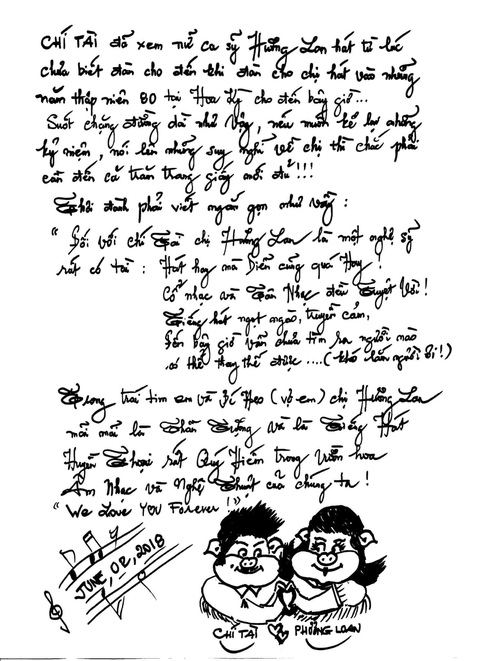 CHÍ TÀI đã xem nữ ca sỹ Hương Lan hát từ lúc
chưa biết đàn cho đến khi đàn cho chị hát vào những
năm thập niên 80 tại Hoa Kỳ cho đến bây giờ...
Suốt chặng đường dài như vậy, nếu muốn kể lại những
kỷ niệm, nói lên những suy nghĩ về chị thì chắc phải
cần đến cả trăm trang giấy mới đủ!!!
Thôi đành phải viết ngắn gọn như vầy:
"Đối với Chí Tài chị Hương Lan là một nghệ sỹ
rất có tài: Hát hay mà Diễn cũng quá Hay!
Cổ nhạc và Tân Nhạc đều Tuyệt Vời!
Tiếng hát ngọt ngào, truyền cảm,
Đến bây giờ vẫn chưa tìm ra người nào
có thể thay thế được....(khó lắm người ơi!)
Trong trái tim em và Bé Heo (vợ em) chị Hương Lan
mãi mãi là Thần Tượng và là Tiếng Hát
Huyền Thoại rất Quý Hiếm trong vườn hoa
Âm Nhạc và Nghệ Thuật của chúng ta!
"We Love YOU Forever!"
JUNE, 02, 2018
CHÍ TÀI
PHƯƠNG LOAN